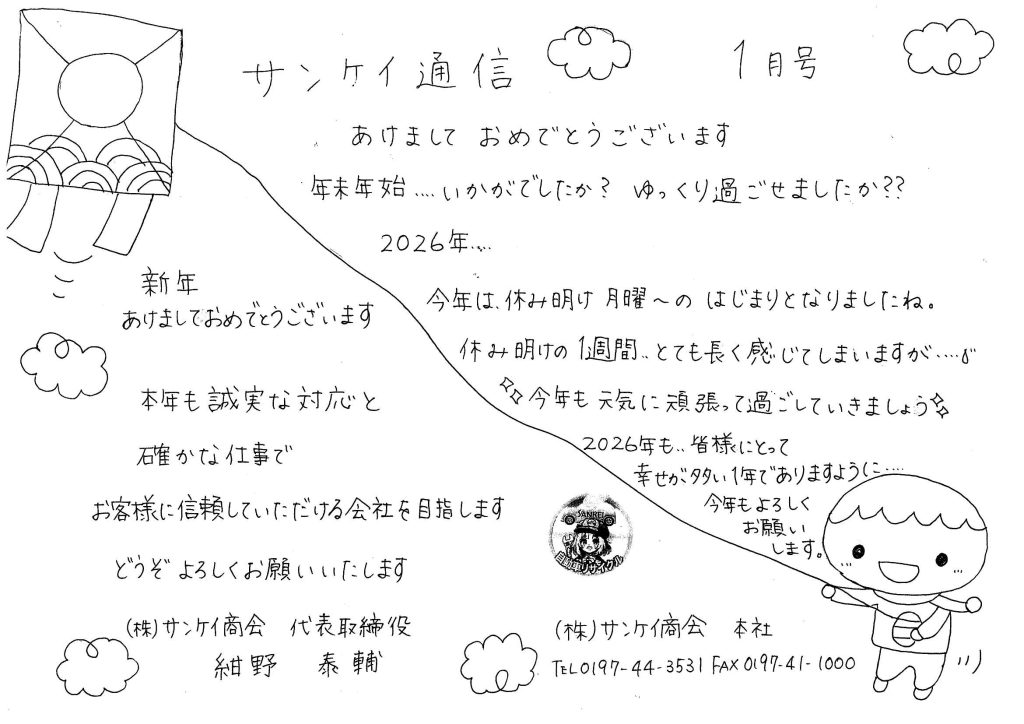 サンケイ通信 1月号
あけまして おめでとうございます
年末年始....いかがでしたか? ゆっくり過ごせましたか??
2026年....
今年は、休み明け 月曜〜の はじまりとなりましたね。
休み明けの1週間..とても長く感じてしまいますが....
今年も元気に頑張って過ごしていきましょう
2026年も..皆様にとって
幸せが多い1年でありますように....
今年もよろしく
お願い
します。
新年
あけましておめでとうございます
本年も誠実な対応と
確かな仕事で
お客様に信頼していただける会社を目指します
どうぞ よろしくお願いいたします
(株)サンケイ商会 代表取締役
紺野 泰輔
SANKEI
自動車リサイクル
(株)サンケイ商会 本社
TEL 0197-44-3531 FAX 0197-41-1000